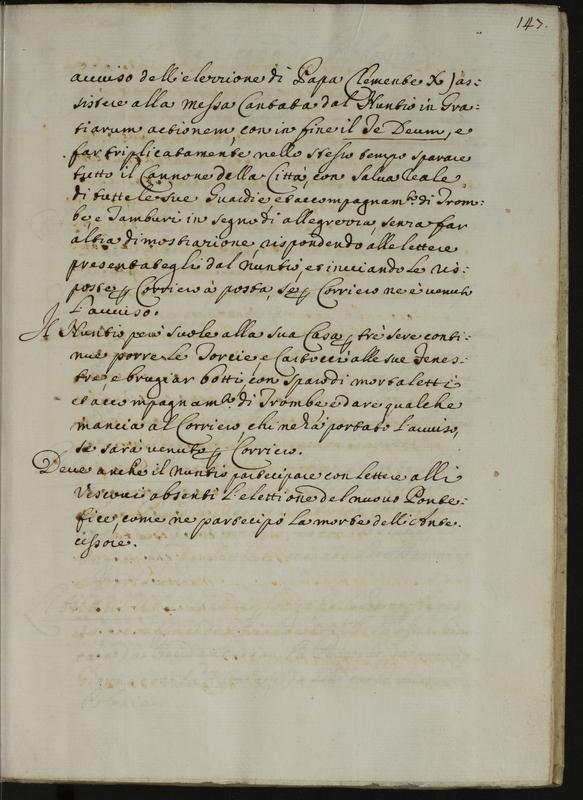 147.
avviso dell'elezzione di Papa Clemente X) as:
sistere alla Messa Cantata dal Nuntio in Gra:
tiarum actionem con in fine il Te Deum, e
far triplicatamente nello stesso tempo sparare
tutto il Cannone della Città, con salva reale
di tutte le sue Guardie, et accompagnam.to di Trom:
be e Tamburi in segno di allegrezza, senza far
altra dimostrazione, rispondendo alle lettere
presentategli dal Nuntio, et inviando le ris:
poste p Corriero à posta, se p Corriero ne è venuto
l'avviso.
Il Nuntio però suole alla sua Casa p trè sere conti:
nue porre le Torcie, e Cartocci alle sue Fenes:
tre, e brugiar botti, con sparo di mortaletti
et accompagnam.to di Trombe, e dare qualche
mancia al Corriero che ne hà portato l'avviso,
se sarà venuto p Corriero.
Deve anche il Nuntio partecipare con lettere alli
Vescovi absenti l'elettione del nuovo Ponte:
fice, come ne partecipò la morte dell'Ante:
cessore.